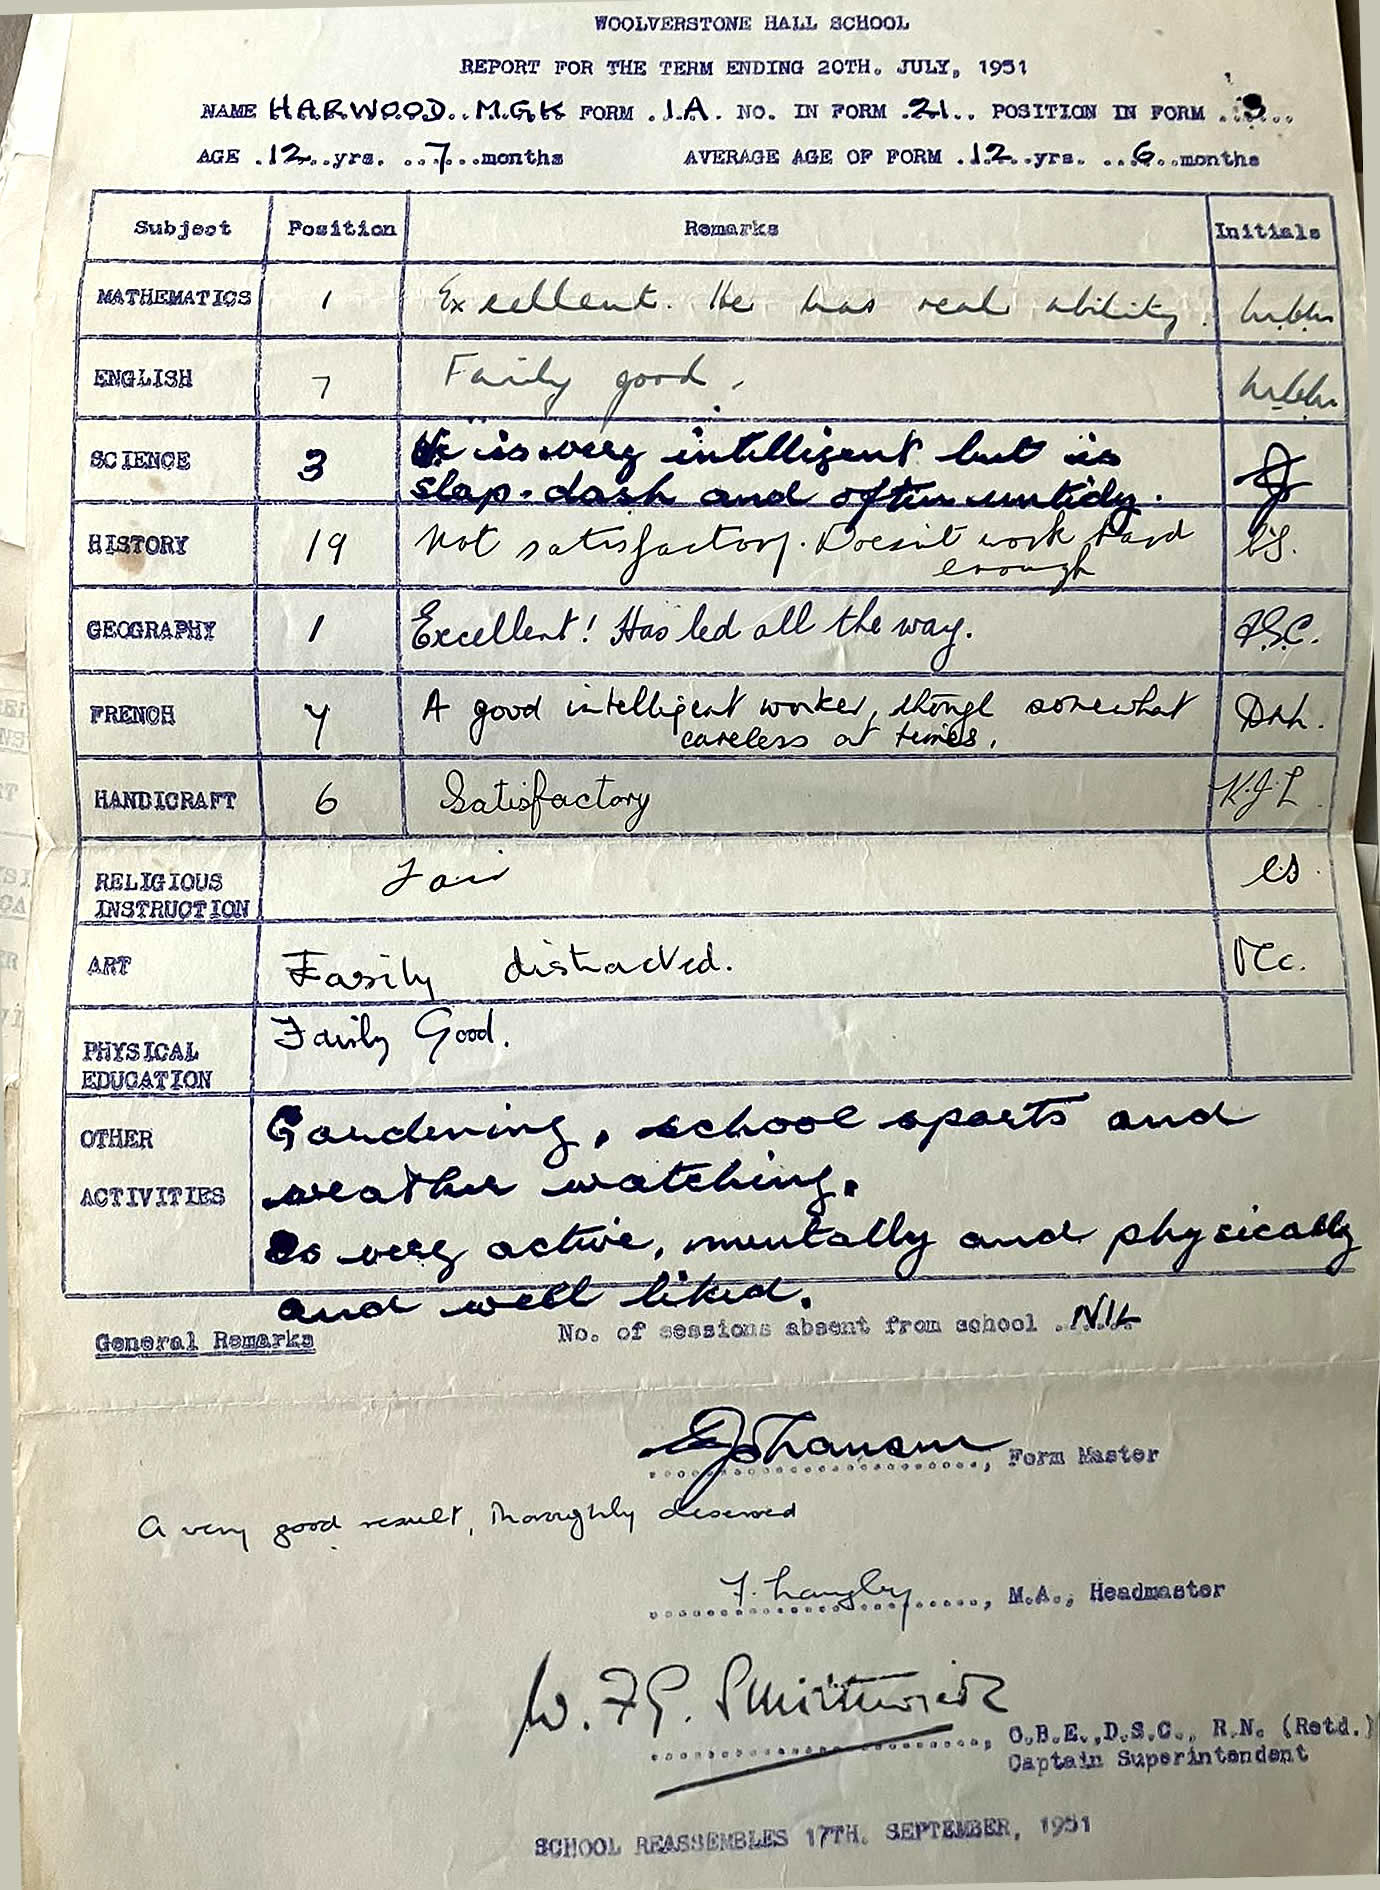 WOOLVERSTONE HALL SCHOOL
REPORT FOR THE TERM ENDING 20TH. JULY, 1951
NAME HARWOOD. M.G.K FORM .1A. NO. IN FORM .21.. POSITION IN FORM ..3...
AGE .12..yrs. ..7...months AVERAGE AGE OF FORM .12..yrs. ...6..months
Subject Position Remarks Initials
MATHEMATICS 1 Excellent. He has real ability.
ENGLISH 7 Fairly good.
SCIENCE 3 He is very intelligent but is
slap-dash and often untidy.
HISTORY 19 Not satisfactory. Doesn't work hard
enough
GEOGRAPHY 1 Excellent! Has led all the way.
FRENCH 4 A good intelligent worker, though somewhat
careless at times.
HANDICRAFT 6 Satisfactory K.J.L.
RELIGIOUS
INSTRUCTION Fair
ART Easily distracted.
PHYSICAL
EDUCATION Fairly Good.
OTHER
ACTIVITIES
Gardening, school sports and
weather watching.
Is very active, mentally and physically
and well liked.
General Remarks No. of sessions absent from school .NIL
Form Master
A very good result, thoroughly deserved
M.A., Headmaster
O.B.E.,D.S.C., R.N. (Retd.)
Captain Superintendent
SCHOOL REASSEMBLES 17TH. SEPTEMBER, 1951